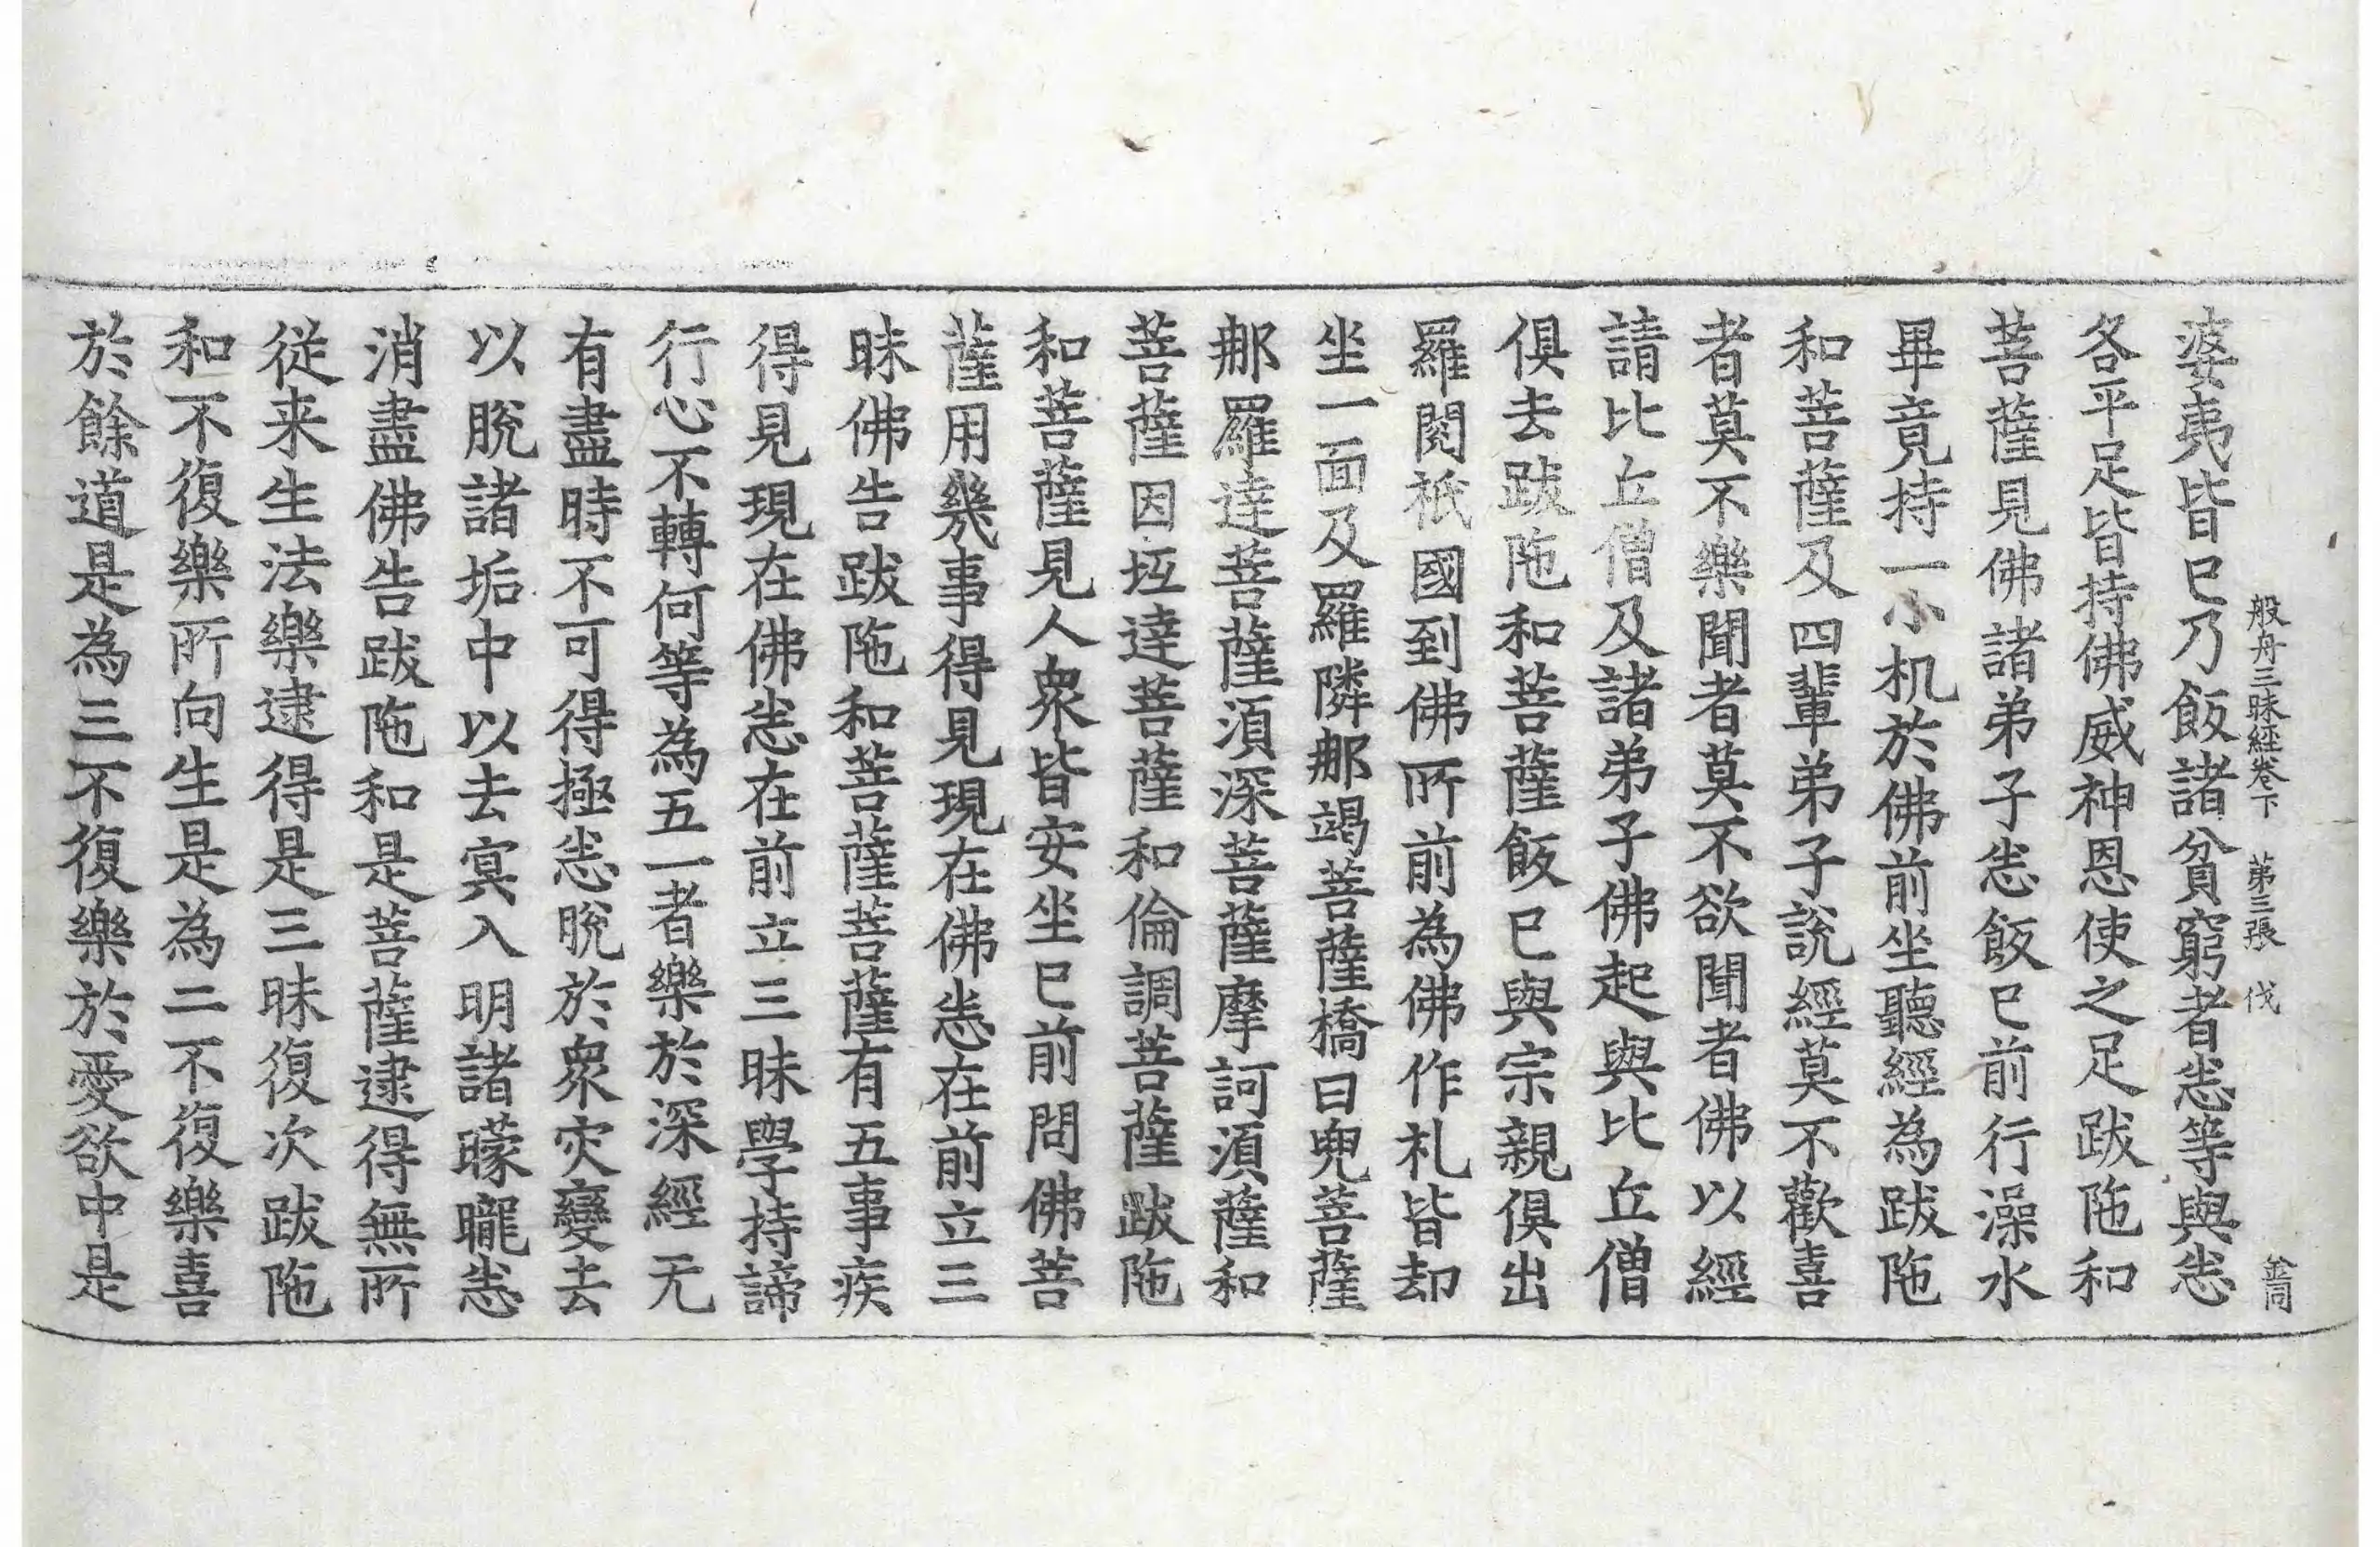 般舟三昧經卷下 第三張 伐
婆夷皆已乃飯諸貧窮者悉等與悉
各平足皆持佛威神恩使之足跋陁和
菩薩見佛諸弟子悉飯已前行澡水
畢竟持一小机於佛前坐聽經為跋陁
和菩薩及四輩弟子說經莫不歡喜
者莫不樂聞者莫不欲聞者佛以經
請比丘僧及諸弟子佛起與比丘僧
俱去跋陁和菩薩飯已與宗親俱出
羅閱祇國到佛所前為佛作礼皆却
坐一面及羅隣那竭菩薩橋曰兜菩薩
那羅達菩薩須深菩薩摩訶須薩和
菩薩因坻達菩薩和倫調菩薩跋陁
和菩薩見人衆皆安坐已前問佛菩
薩用幾事得見現在佛悉在前立三
昧佛告跋陁和菩薩菩薩有五事疾
得見現在佛悉在前立三昧學持諦
行心不轉何等為五一者樂於深經无
有盡時不可得極悉脫於衆灾變去
以脫諸垢中以去冥入明諸矇矓悉
消盡佛告跋陁和是菩薩逮得無所
從来生法樂逮得是三昧復次跋陁
和不復樂所向生是為二不復樂喜
於餘道是為三不復樂於愛欲中是